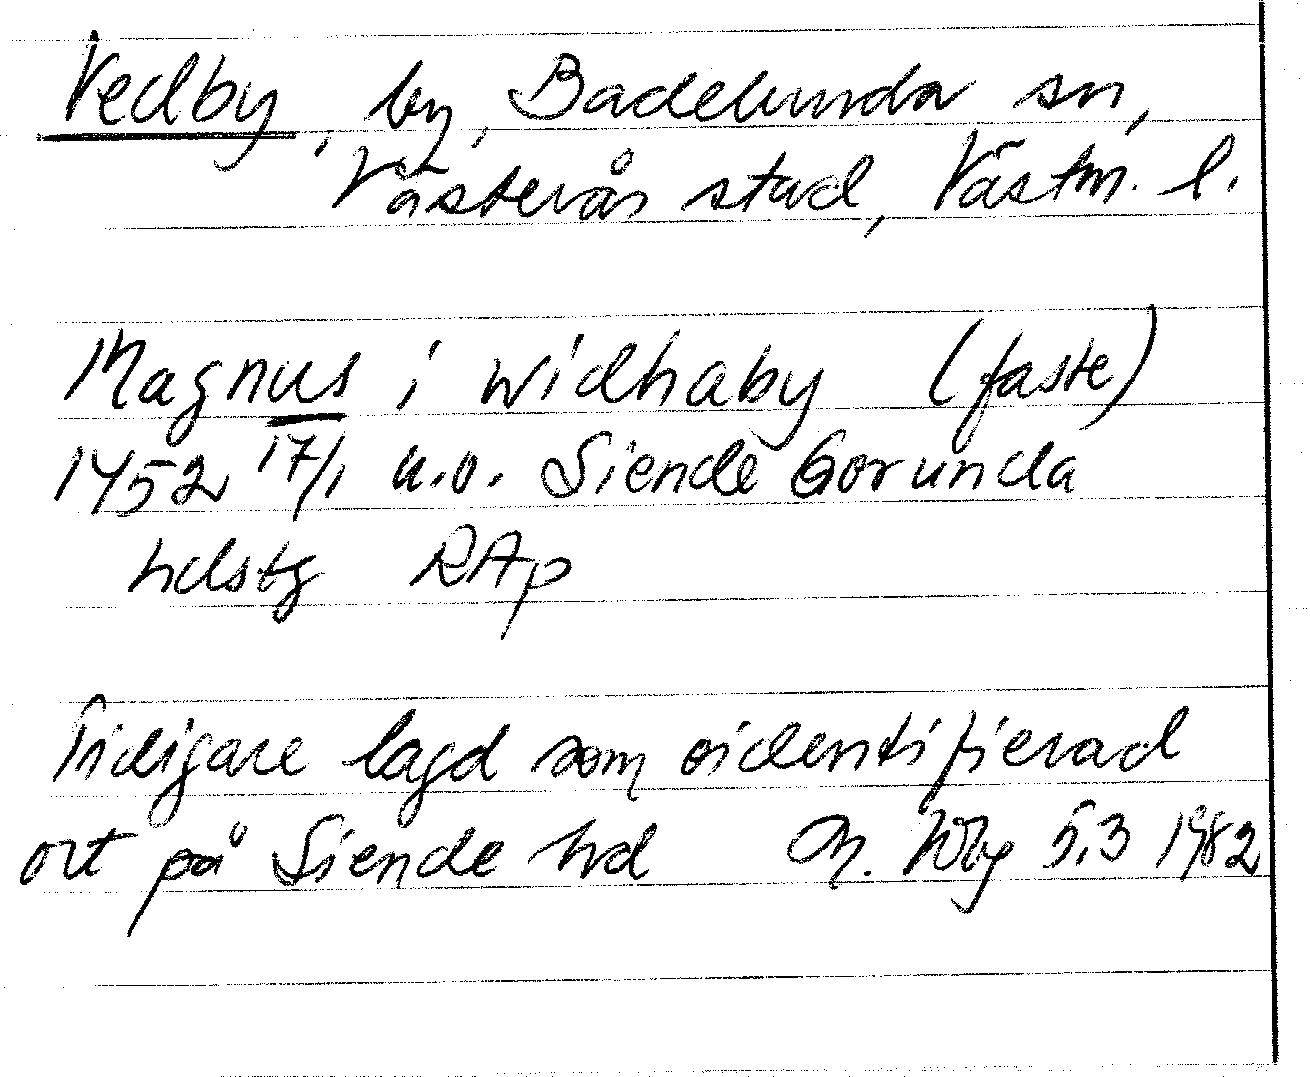 Vedby, by, Badelunda sn,
Västerås stad, Västm. l.
Magnus i widhaby (faste)
1452 17/1 u.o. Siende Gorunda
hdstg RAp
Tidigare lagd som oidentifierad
ort på Siende hd M. 5.3 1982